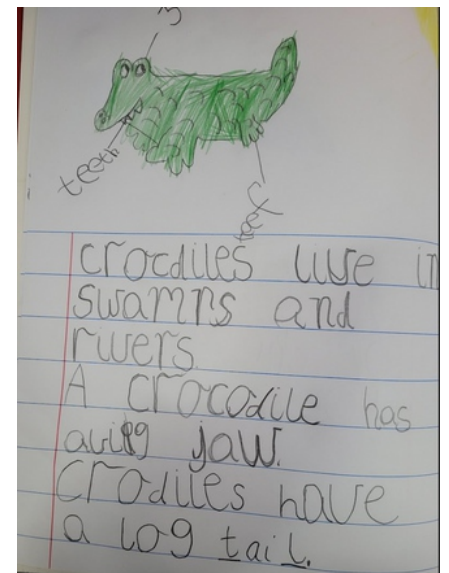 teeth
feet
crocdiles live in
swamps and
rivers.
A crocodile has
jaw.
crodiles have
a log tail.